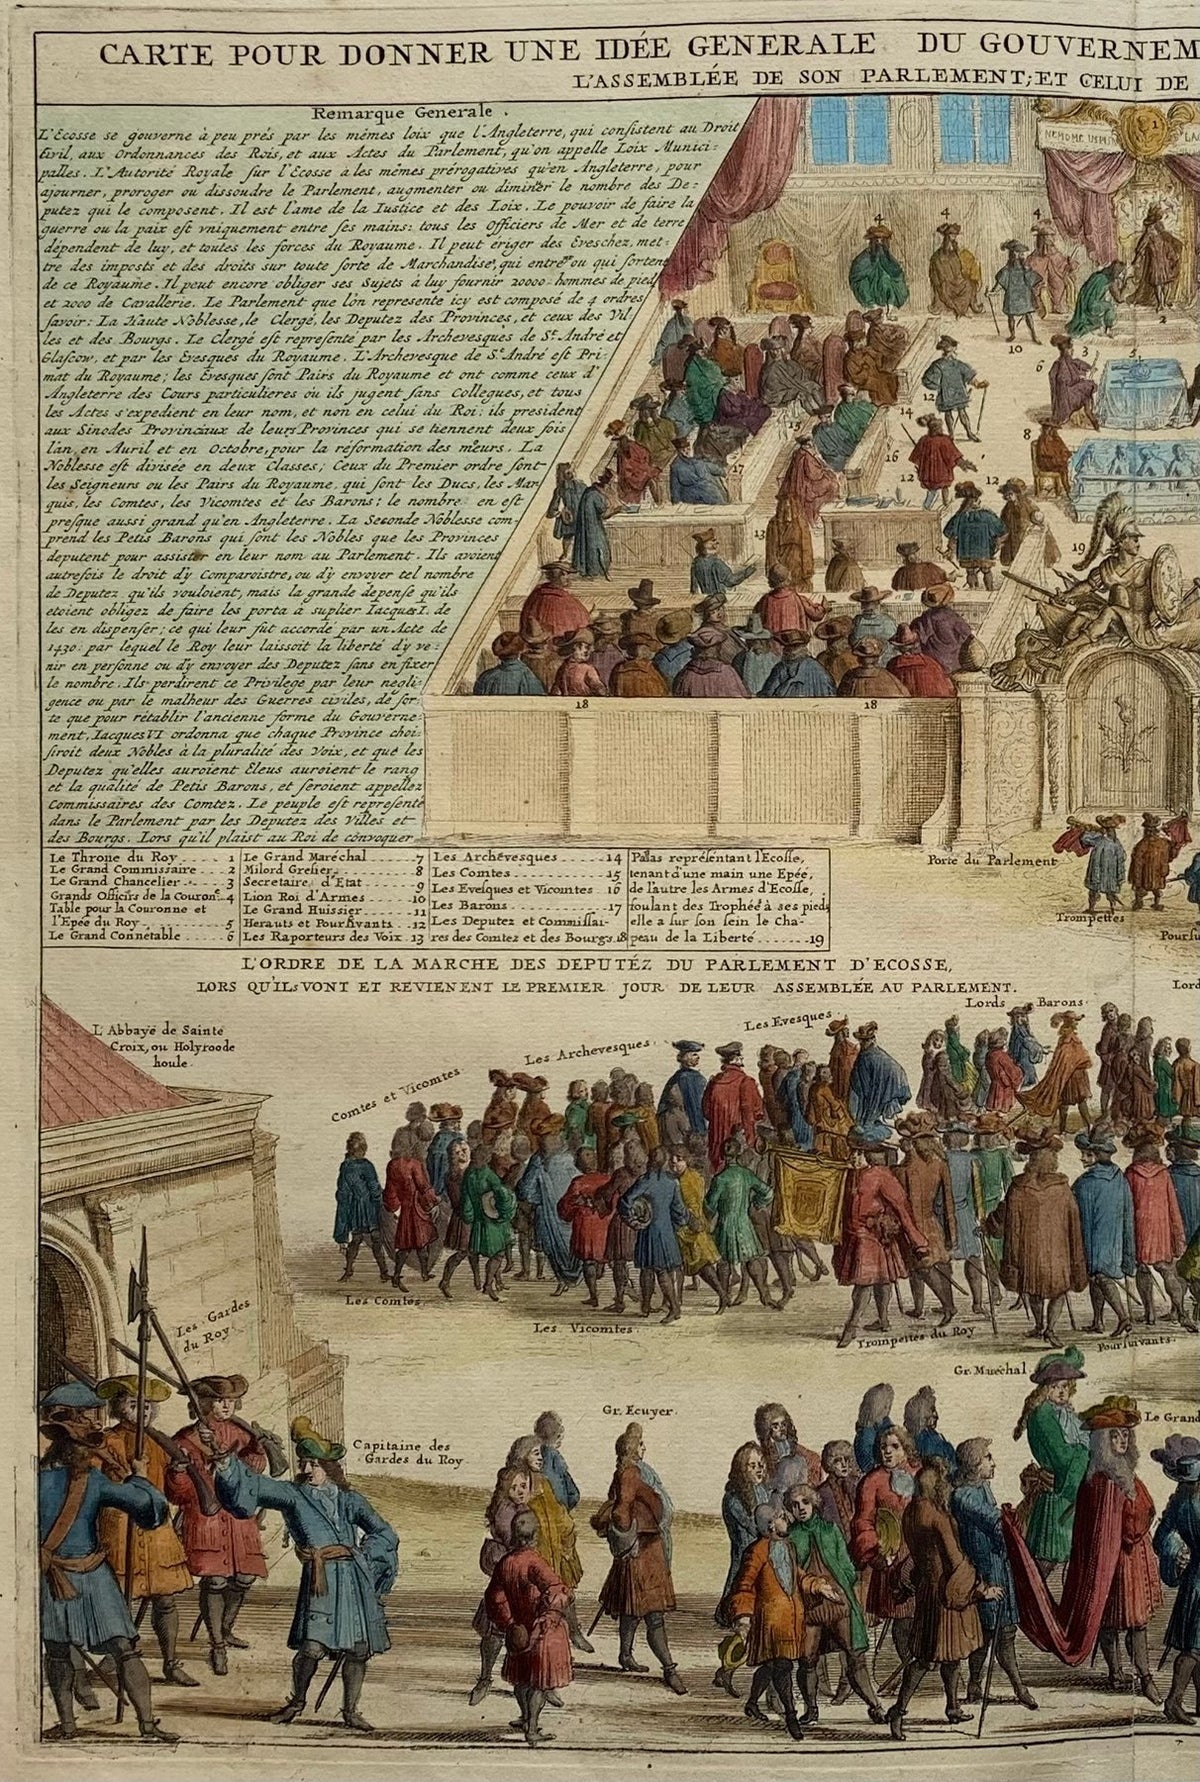 CARTE POUR DONNER UNE IDÉE GENERALE DU GOUVERNEM
L'ASSEMBLÉE DE SON PARLEMENT; ET CELUI DE
Remarque Generale.
L'Ecosse se gouverne à peu prés par les mémes loix que l'Angleterre, qui consistent au Droit
Civil, aux Ordonnances des Rois, et aux Actes du Parlement, qu'on appelle Loix Munici-
palles. L'Autorité Royale sur l'Ecosse à les mémes prérogatives qu'en Angleterre, pour
ajourner, proroger ou dissoudre le Parlement, augmenter ou diminer le nombre des De-
putez qui le composent. Il est l'ame de la Iustice et des Loix. Le pouvoir de faire la
guerre ou la paix est vniquement entre ses mains: tous les Officiers de Mer et de terre
dépendent de luy, et toutes les forces du Royaume. Il peut ériger des Eveschez, met-
tre des imposts et des droits sur toute sorte de Marchandise, qui entre ou qui sortent
de ce Royaume. Il peut encore obliger ses Sujets à luy fournir 20000 hommes de pied
et 2000 de Cavallerie. Le Parlement que l'on represente icy est composé de 4 ordres
savoir: La Haute Noblesse, le Clergé, les Deputez des Provinces, et ceux des Vil
les et des Bourgs. Le Clergé est representé par les Archevesques de St. André et
Glascow, et par les Evesques du Royaume. L'Archevesque de St. André est Pri-
mat du Royaume; les Evesques sont Pairs du Royaume et ont comme ceux d'
Angleterre des Cours particulieres ou ils jugent sans Collegues, et tous
les Actes s'expedient en leur nom, et non en celui du Roi: ils president
aux Sinodes Provinciaux de leurs Provinces qui se tiennent deux fois
l'an, en Auril et en Octobre, pour la réformation des mœurs. La
Noblesse est divisée en deux Classes; Ceux du Premier ordre sont
les Seigneurs ou les Pairs du Royaume, qui sont les Ducs, les Mar
quis, les Comtes, les Vicomtes et les Barons: le nombre en est
presque aussi grand qu'en Angleterre. La Seconde Noblesse com-
prend les Petis Barons qui sont les Nobles que les Provinces
deputent pour assister en leur nom au Parlement. Ils avoient
autrefois le droit d'y Comparoistre, ou d'y envoyer tel nombre
de Deputez qu'ils vouloient, mais la grande depense qu'ils
etoient obligez de faire les porta à suplier Iacques I. de
les en dispenser; ce qui leur fût accordé par un Acte de
1430: par lequel le Roy leur laissoit la liberté d'y ve-
nir en personne ou d'y envoyer des Deputez sans en fixer
le nombre. Ils perdirent ce Privilege par leur negli-
gence ou par le malheur des Guerres civiles, de sor-
te que pour rétablir l'ancienne forme du Gouverne-
ment, Iacques VI ordonna que chaque Province choi-
siroit deux Nobles à la pluralité des voix, et que les
Deputez qu'elles auroient Eleus auroient le rang
et la qualité de Petis Barons, et seroient appellez
Commissaires des Comtez. Le peuple est representé
dans le Parlement par les Deputez des Villes et
des Bourgs. Lors qu'il plaist au Roi de convoquer
NEMO ME IMPUNE LAC
1
4
4
4
2
10
3
5
6
12
14
8
15
16
17
12
12
13
19
18
18
Le Throne du Roy .... 1
Le Grand Commissaire ... 2
Le Grand Chancelier ... 3
Grands Officirs de la Couronē. 4
Table pour la Couronne et
l'Epée du Roy ....... 5
Le Grand Connetable .... 6
Le Grand Maréchal ...... 7
Milord Grefier ......... 8
Secretaire d'Etat ....... 9
Lion Roi d'Armes ..... 10
Le Grand Huissier ..... 11
Herauts et Poursivants .. 12
Les Raporteurs des Voix. 13
Les Archévesques ...... 14
Les Comtes .......... 15
Les Evesques et Vicomtes . 16
Les Barons .......... 17
Les Deputez et Commissai-
res des Comtez et des Bourgs. 18
Palas représentant l'Ecosse,
tenant d'une main une Epée,
de l'autre les Armes d'Ecosse,
foulant des Trophée à ses pieds
elle a sur son sein le Cha-
peau de la Liberté ....... 19
Porte du Parlement
Trompettes
Poursu
L'ORDRE DE LA MARCHE DES DEPUTÉZ DU PARLEMENT D'ECOSSE,
LORS QU'ILS VONT ET REVIENENT LE PREMIER JOUR DE LEUR ASSEMBLÉE AU PARLEMENT.
Lord
Lords Barons
Les Evesques
Les Archevesques
Comtes et Vicomtes
L'Abbayé de Sainte
Croix, ou Holyroode
houle
Les Comtes
Les Vicomtes
Trompettes du Roy
Poursuivants
Les Gardes
du Roy
Gr. Maréchal
Gr. Ecuyer
Le Grand
Capitaine des
Gardes du Roy